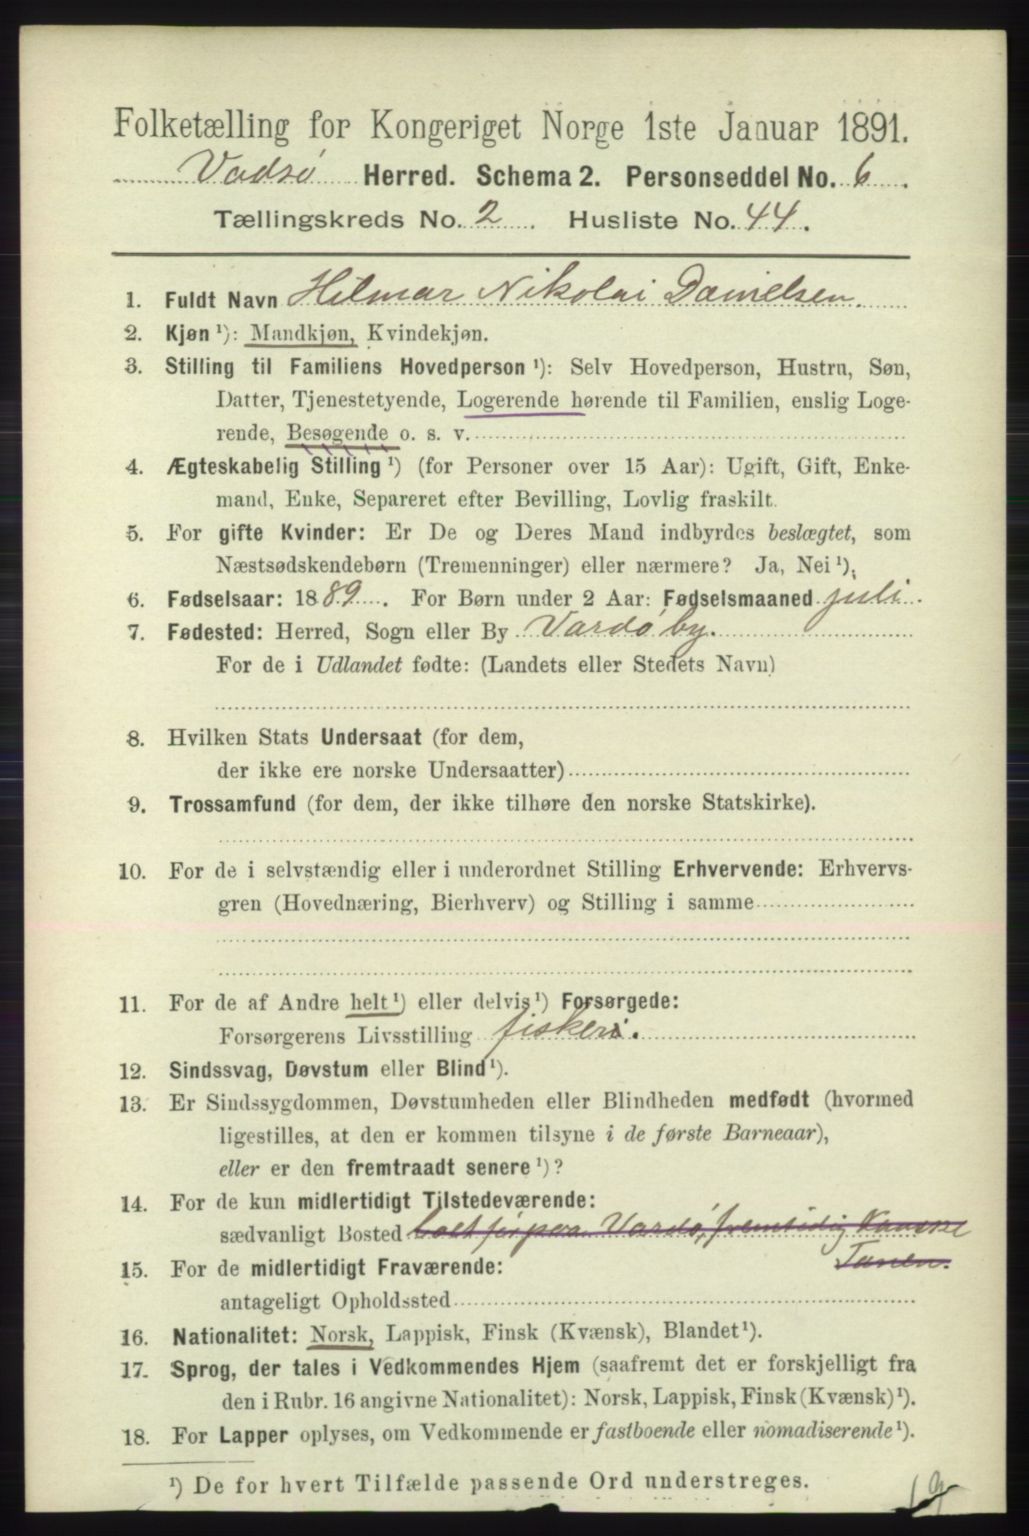 Folketælling for Kongeriget Norge 1ste Januar 1891.
Vadsø Herred. Schema 2. Personseddel No. 6.
Tællingskreds No. 2. Husliste No. 44.
1. Fuldt Navn Hilmar Nikolai Danielsen.
2. Kjøn ¹): Mandkjøn, Kvindekjøn.
3. Stilling til Familiens Hovedperson ¹): Selv Hovedperson, Hustru, Søn,
Datter, Tjenestetyende, Logerende hørende til Familien, enslig Loge-
rende, Besøgende o. s. v.
4. Ægteskabelig Stilling ¹) (for Personer over 15 Aar): Ugift, Gift, Enke-
mand, Enke, Separeret efter Bevilling, Lovlig fraskilt.
5. For gifte Kvinder: Er De og Deres Mand indbyrdes beslægtet, som
Næstsødskendebørn (Tremenninger) eller nærmere? Ja, Nei ¹).
6. Fødselsaar: 1889. For Børn under 2 Aar: Fødselsmaaned juli.
7. Fødested: Herred, Sogn eller By Vardø by.
For de i Udlandet fødte: (Landets eller Stedets Navn)
8. Hvilken Stats Undersaat (for dem,
der ikke ere norske Undersaatter)
9. Trossamfund (for dem, der ikke tilhøre den norske Statskirke).
10. For de i selvstændig eller i underordnet Stilling Erhvervende: Erhvervs-
gren (Hovednæring, Bierhverv) og Stilling i samme
11. For de af Andre helt ¹) eller delvis ¹) Forsørgede:
Forsørgerens Livsstilling fiskeri.
12. Sindssvag, Døvstum eller Blind ¹).
13. Er Sindssygdommen, Døvstumheden eller Blindheden medfødt (hvormed
ligestilles, at den er kommen tilsyne i de første Barneaar),
eller er den fremtraadt senere ¹)?
14. For de kun midlertidigt Tilstedeværende:
sædvanligt Bosted Vardø, fremtidig
Tanen.
15. For de midlertidigt Fraværende:
antageligt Opholdssted
16. Nationalitet: Norsk, Lappisk, Finsk (Kvænsk), Blandet ¹).
17. Sprog, der tales i Vedkommendes Hjem (saafremt det er forskjelligt fra
den i Rubr. 16 angivne Nationalitet): Norsk, Lappisk, Finsk (Kvænsk) ¹).
18. For Lapper oplyses, om Vedkommende er fastboende eller nomadiserende ¹).
¹) De for hvert Tilfælde passende Ord understreges.